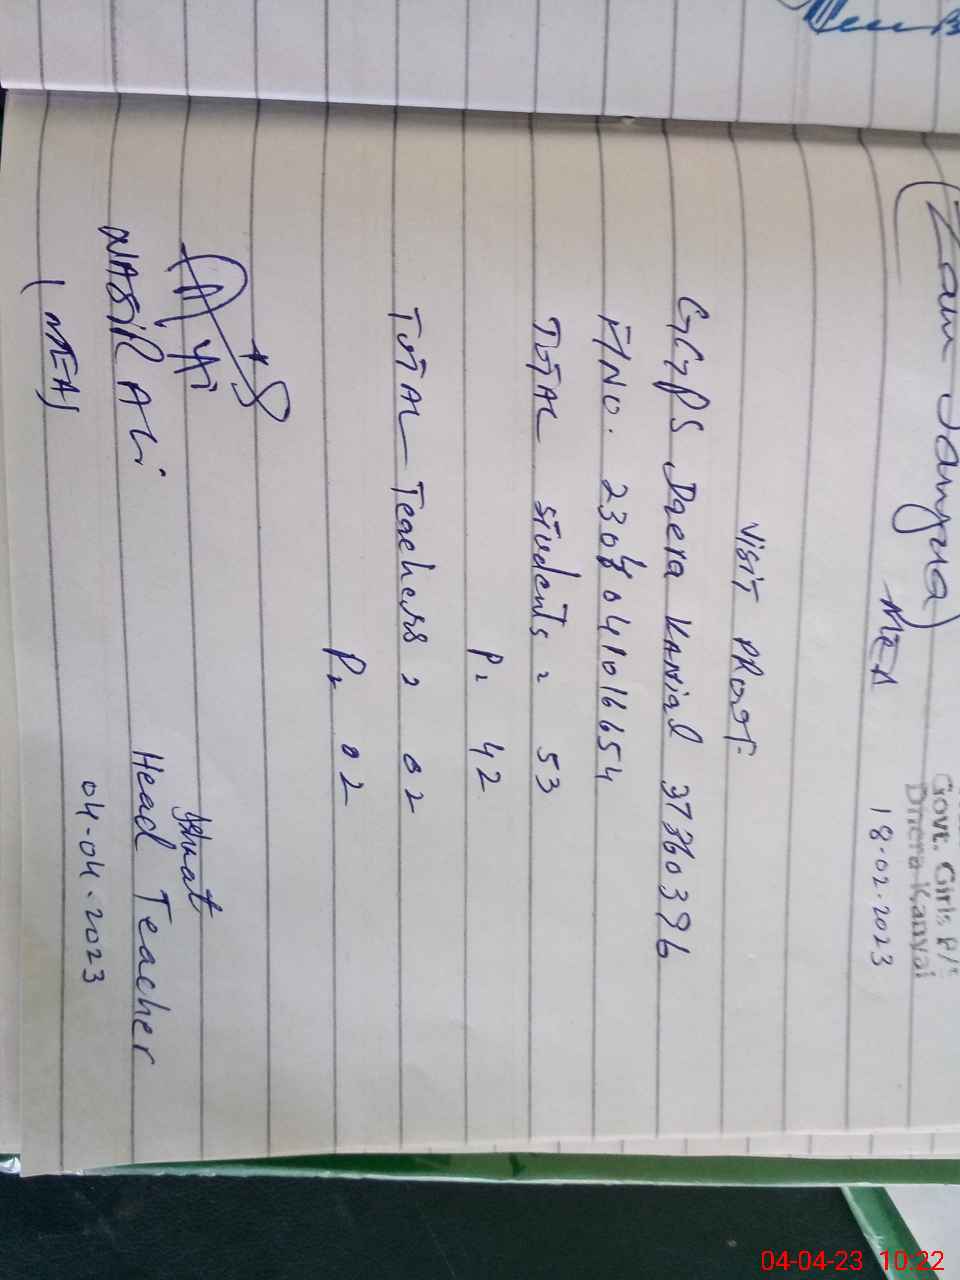 (Zain Janjua)
MEA
Govt. Girls P/S
Dhera Kanyal
18.02.2023
Visit PROOF:
GGPS Daera Kanial 37360396
TOTAL Students = 53
P= 42
TOTAL Teachers = 02
P= 02
NASIR ALi
(MEA)
Head Teacher
04.04.2023
04-04-23 10:22